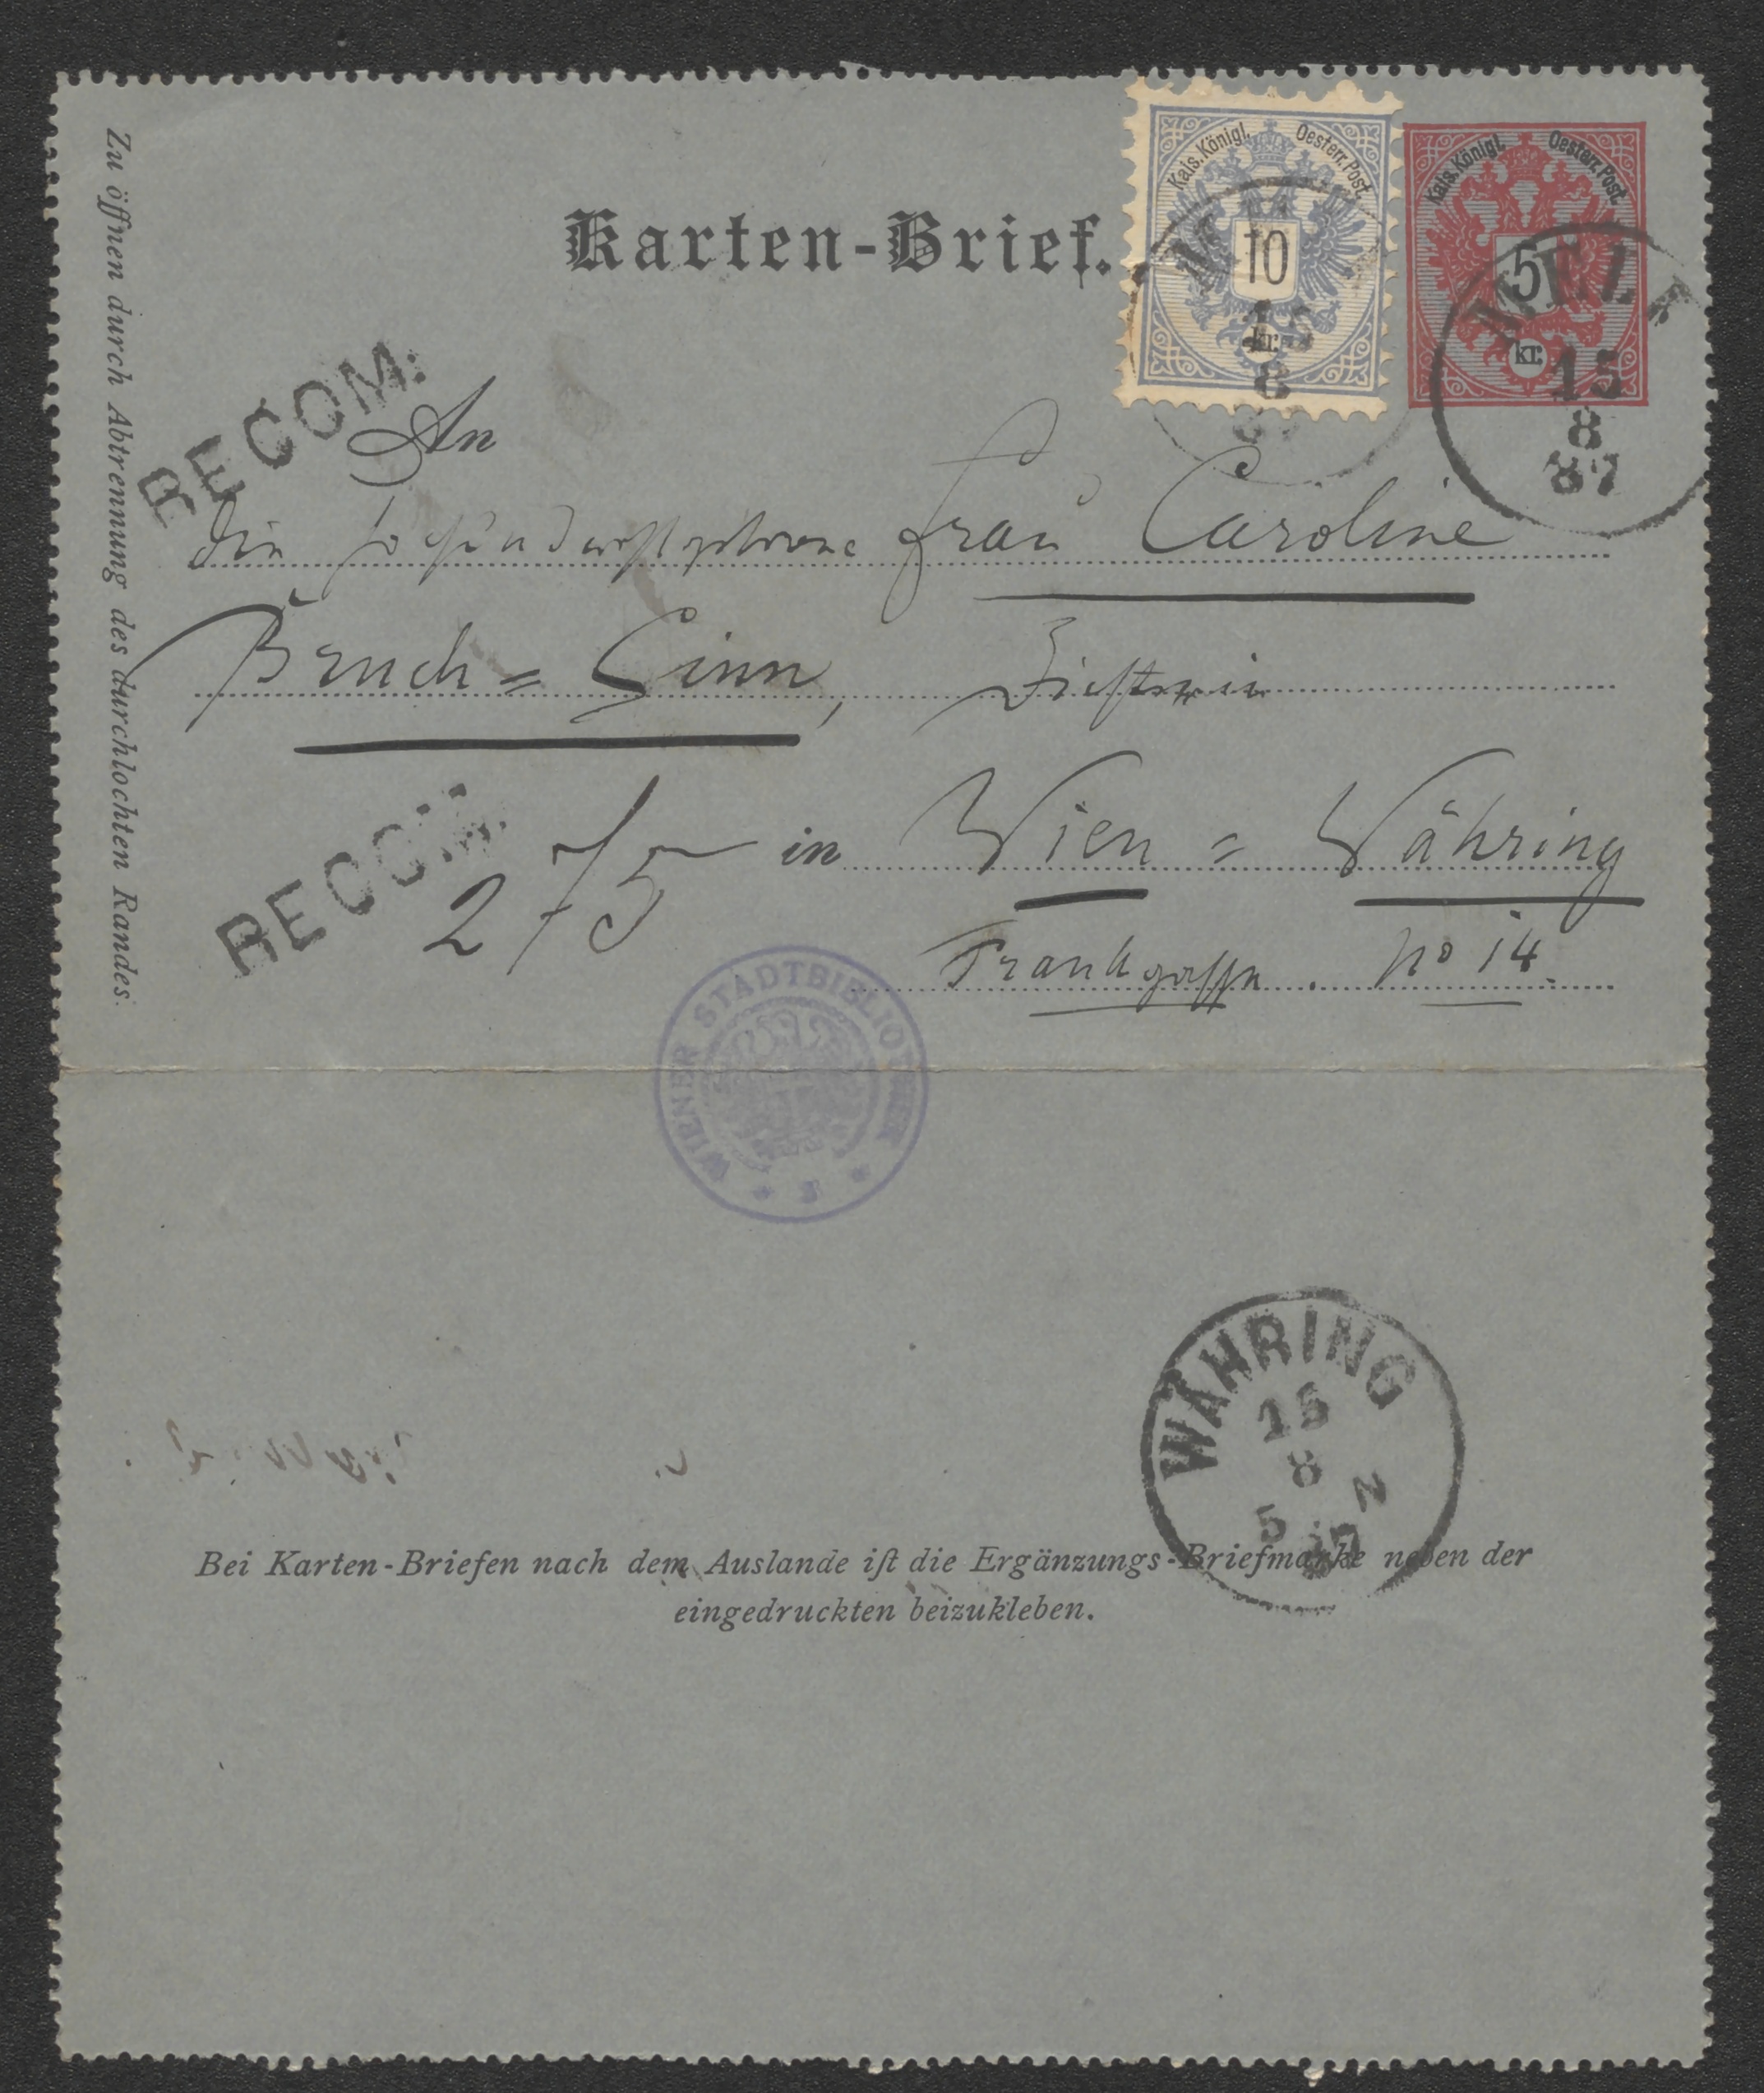 Zu öffnen durch Abtrennung des durchlochten Randes.
Karten-Brief.
Kais. Königl. Oesterr. Post.
10
kr.
Kais. Königl. Oesterr. Post.
5
kr.
MELK
15
8
87
RECOM:
An
die hochwohlgeborene Frau Caroline
Bruch=Sinn,
RECOM.
in Wien = Währing
Frankgasse. No 14.
WIENER STADTBIBLIOTHEK
WÄHRING
15
8
5
N
Bei Karten-Briefen nach dem Auslande iſt die Ergänzungs-Briefmarke neben der
eingedruckten beizukleben.